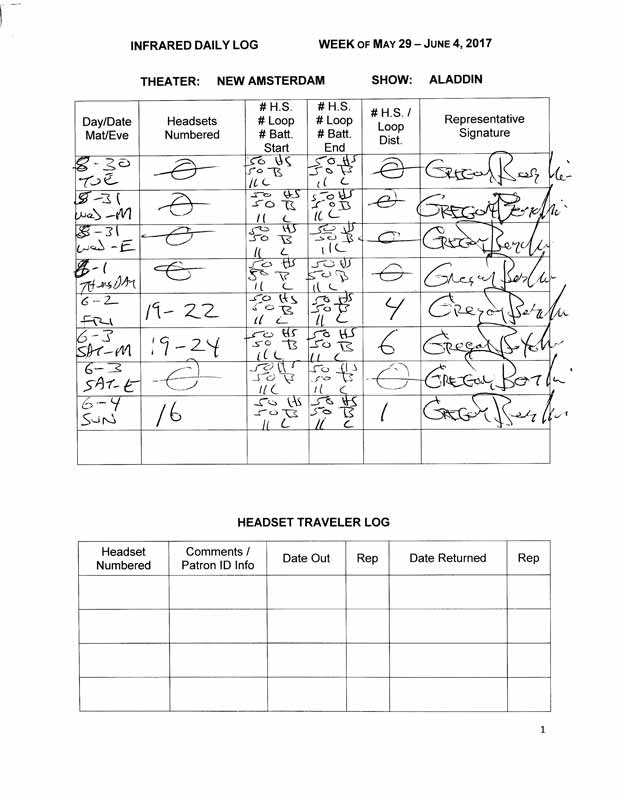 INFRARED DAILY LOG WEEK OF MAY 29 – JUNE 4, 2017
THEATER: NEW AMSTERDAM SHOW: ALADDIN
Day/Date Mat/Eve Headsets Numbered # H.S. # Loop # Batt. Start # H.S. # Loop # Batt. End # H.S. / Loop Dist. Representative Signature
5-30 TUE 0 50 HS 50 B 11 L 50 HS 50 B 11 L 0 GREGORY
5-31 WED-M 0 50 HS 50 B 11 L 50 HS 50 B 11 L 0 GREGORY
5-31 WED-E 0 50 HS 50 B 11 L 50 HS 50 B 11 L 0 GREGORY
6-1 0 50 HS 50 B 11 L 50 HS 50 B 11 L 0 GREGORY
6-2 FRI 19-22 50 HS 50 B 11 L 50 HS 50 B 11 L 4 GREGORY
6-3 SAT-M 19-24 50 HS 50 B 11 L 50 HS 50 B 11 L 6 GREGORY
6-3 SAT-E 0 50 HS 50 B 11 L 50 HS 50 B 11 L 0 GREGORY
6-4 SUN 16 50 HS 50 B 11 L 50 HS 50 B 11 L 1 GREGORY
HEADSET TRAVELER LOG
Headset Numbered Comments / Patron ID Info Date Out Rep Date Returned Rep
1